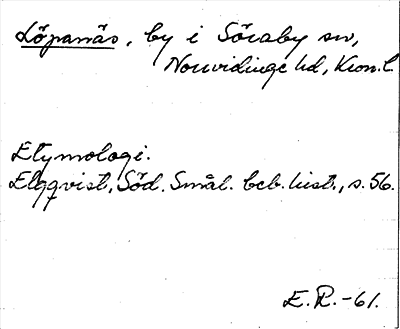 Löpanäs, by i Söraby sn,
Norrvidinge hd, Kron.l.
Etymologi.
Elqqvist, Söd. Smål. beb. hist., s. 56.
E.R.-61.